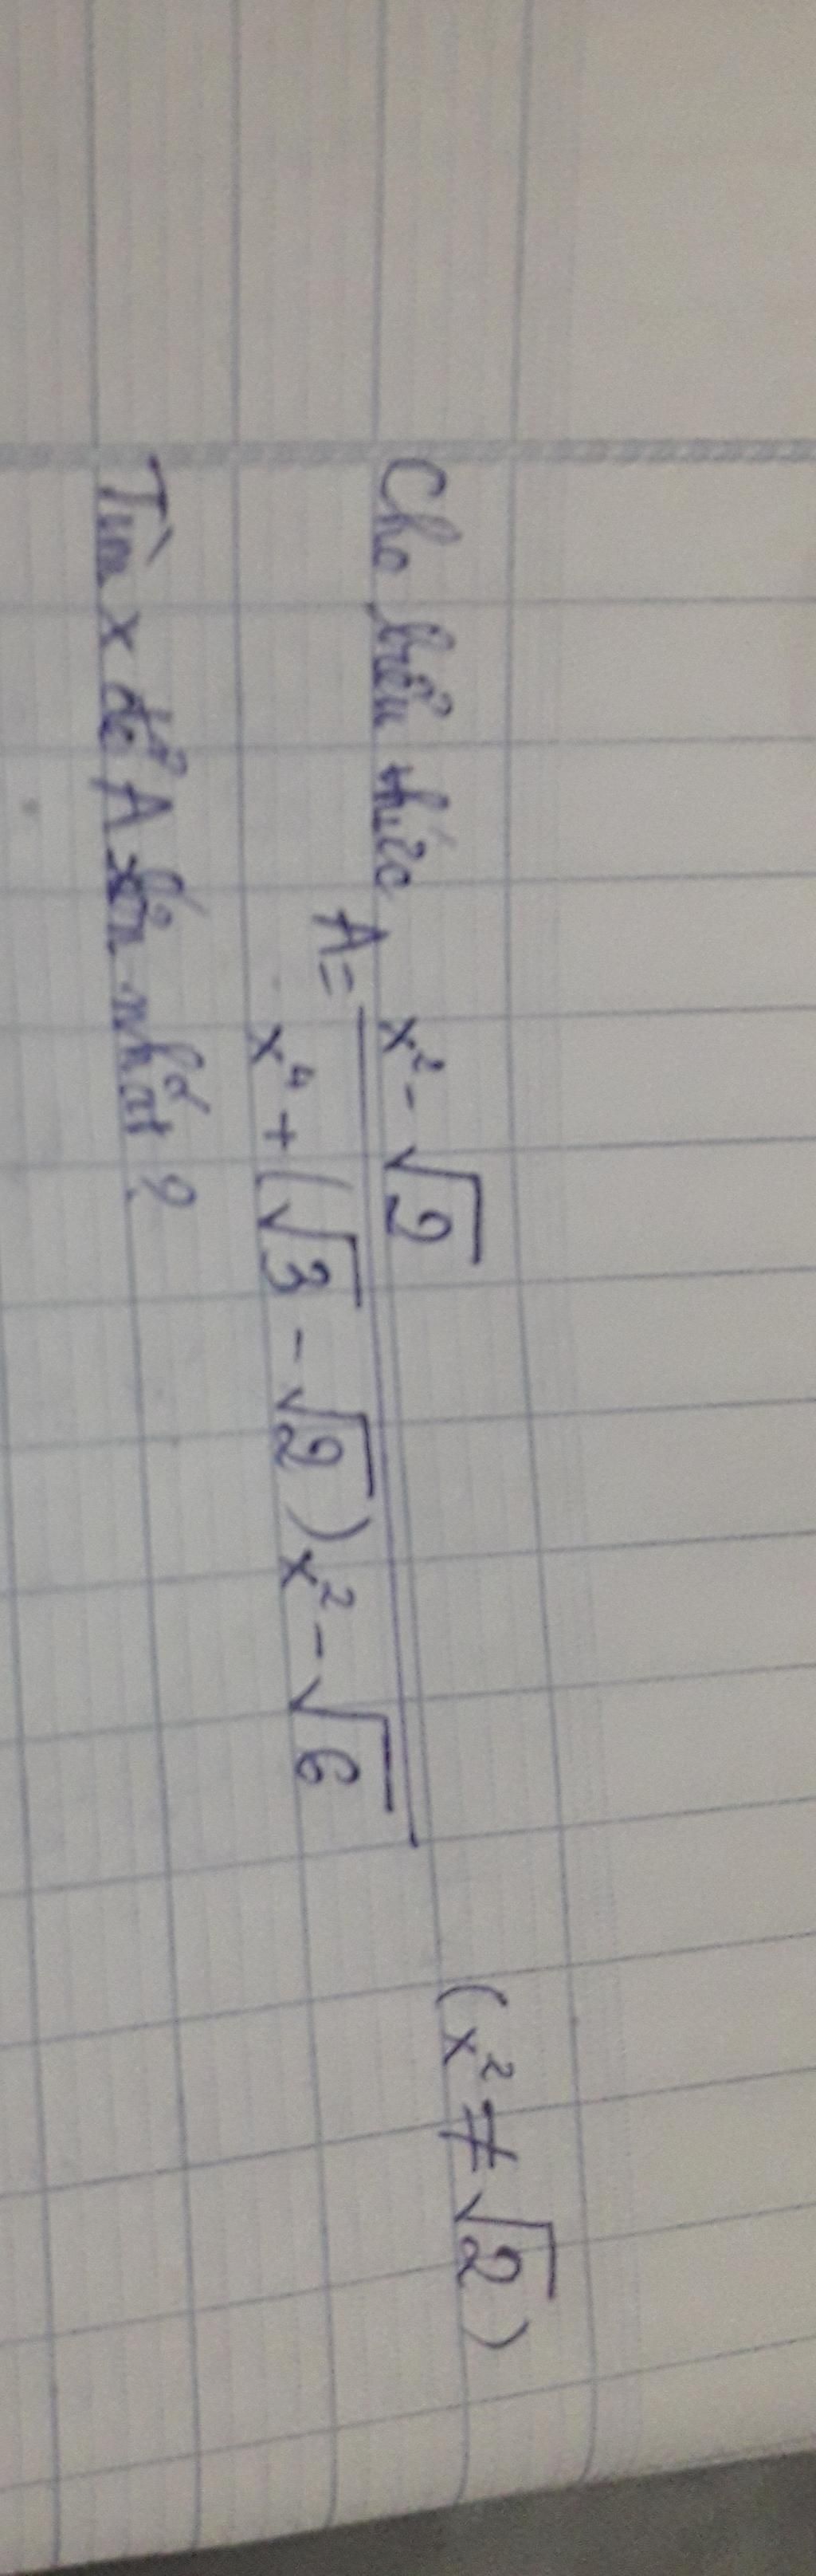 Cho biểu thức
A = \frac{x^2 - \sqrt{2}}{x^4 + (\sqrt{3} - \sqrt{2})x^2 - \sqrt{6}} (x^2 ≠ \sqrt{2})
Tìm x để A lớn nhất ?